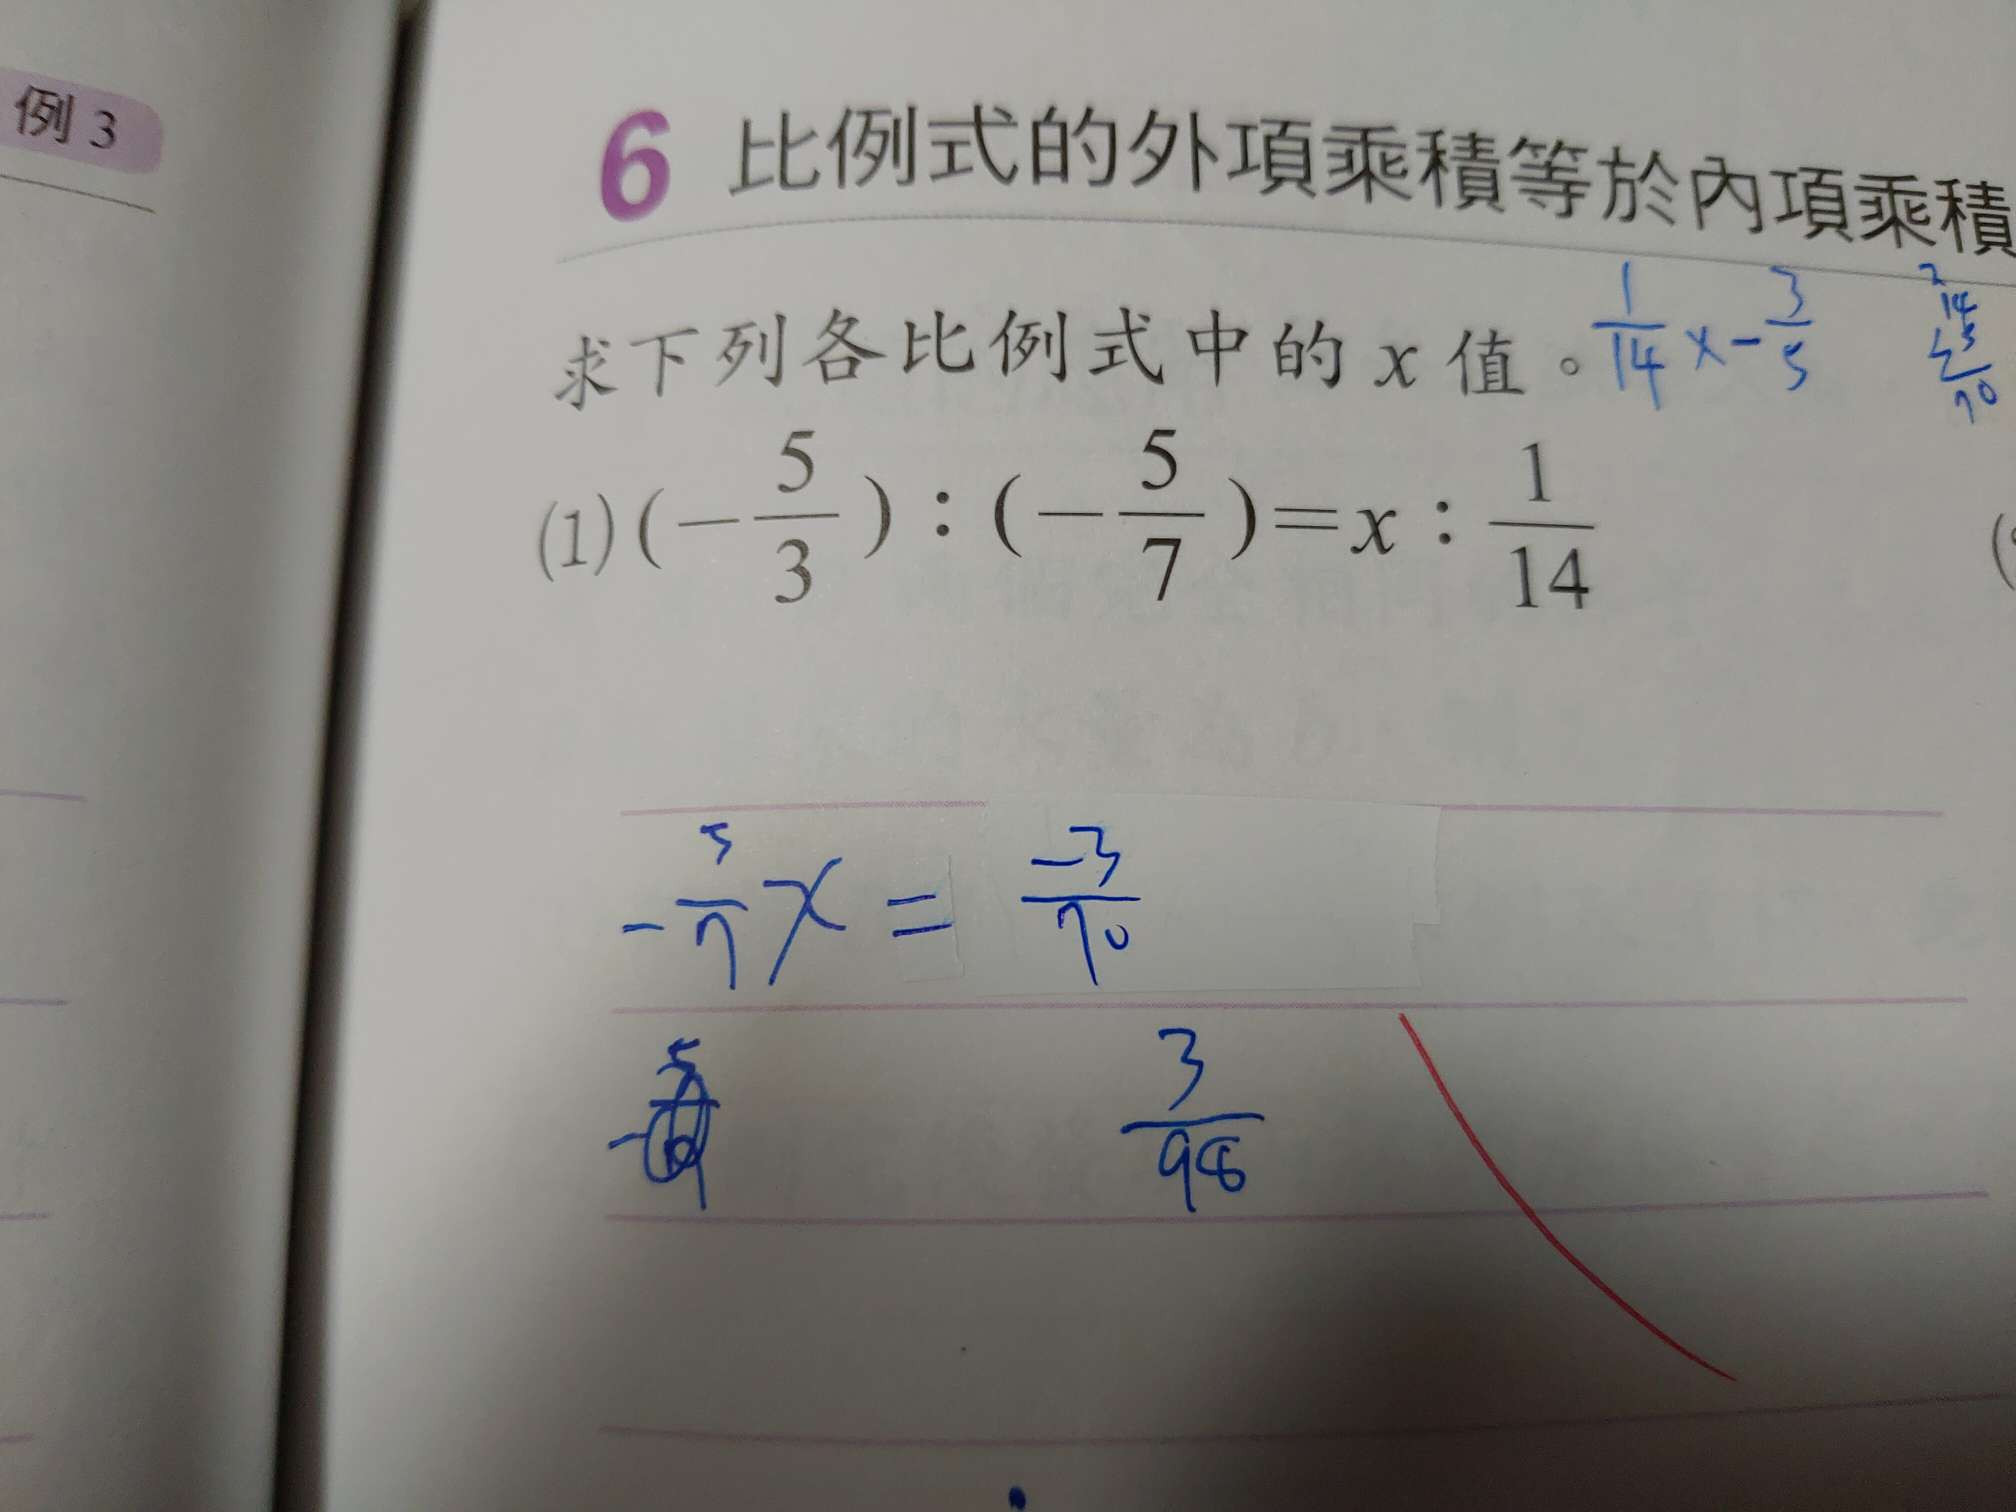 例 3
6 比例式的外項乘積等於內項乘積
求下列各比例式中的 x 值。
1/14 x - 3/5
14
5
70
(1) (-5/3) : (-5/7) = x : 1/14
-5/7 x = -3/70
3/98